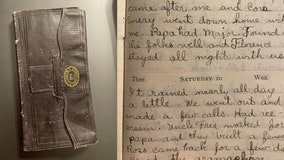 came after me and Cora
went down home with
me. Papa had Major. Found
the folks well and Florence
stayed all night with us
Ther. SATURDAY 30 Wea.
It rained nearly all day
a little. We went out and
made a few calls. Had ice
cream. Uncle Fres worked for
papa and they built a fence
Ross came back for a few da
the gramophone